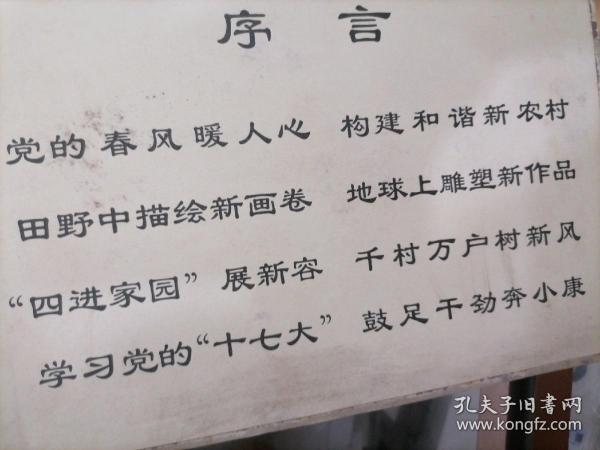 序言
党的春风暖人心 构建和谐新农村
田野中描绘新画卷 地球上雕塑新作品
“四进家园”展新容 千村万户树新风
学习党的“十七大” 鼓足干劲奔小康
孔夫子旧书网
www.kongfz.com